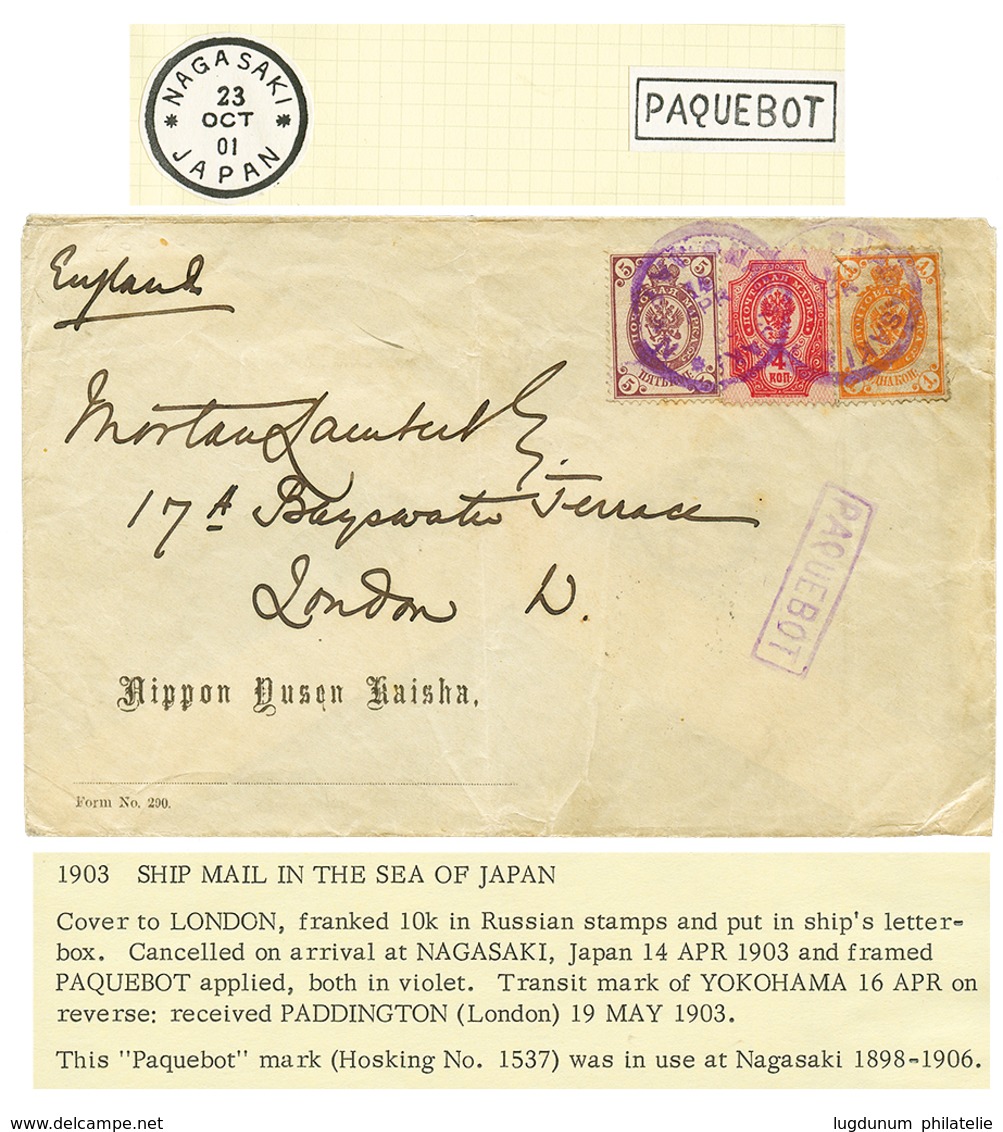 NAGASAKI
23
OCT
01
JAPAN
PAQUEBOT
England
5 5
ПОЧТОВАЯ МАРКА
4
КОП
Mortan Lambert
17A Bayswater Terrace
London W.
PAQUEBOT
Nippon Yusen Kaisha.
Form No. 290.
1903 SHIP MAIL IN THE SEA OF JAPAN
Cover to LONDON, franked 10k in Russian stamps and put in ship's letter-
box. Cancelled on arrival at NAGASAKI, Japan 14 APR 1903 and framed
PAQUEBOT applied, both in violet. Transit mark of YOKOHAMA 16 APR on
reverse: received PADDINGTON (London) 19 MAY 1903.
This "Paquebot" mark (Hosking No. 1537) was in use at Nagasaki 1898-1906.
lugdunum philatelie